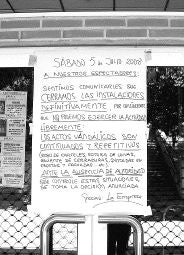 SÁBADO 5 de Julio 2008
A NUESTROS ESPECTADORES:
SENTIMOS COMUNICARLES QUE
CERRAMOS LAS INSTALACIONES
DEFINITIVAMENTE POR
QUE NO PODEMOS EJERCER LA ACTIVIDAD
LIBREMENTE.
LOS ACTOS VANDÁLICOS SON
CONTINUADOS Y REPETITIVOS
ROTURA DE LUNAS,
DE CERRADURAS, PINTADAS EN
PUERTAS Y FACHADAS
ANTE LA AUSENCIA DE
QUE CONTROLE ESTAS SITUACIONES
SE TOMA LA DECISIÓN ANUNCIADA
Gracias La Empresa